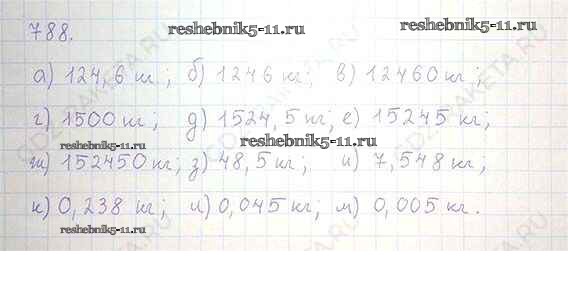 788.
reshebnik5-11.ru
reshebnik5-11.ru
а) 124,6 кг; б) 1246 кг; в) 12460 кг;
г) 1500 кг; д) 1524,5 кг; е) 15245 кг;
reshebnik5-11.ru
ж) 152450 кг; з) 48,5 кг; и) 7,548 кг;
к) 0,238 кг; л) 0,045 кг; м) 0,005 кг.
reshebnik5-11.ru